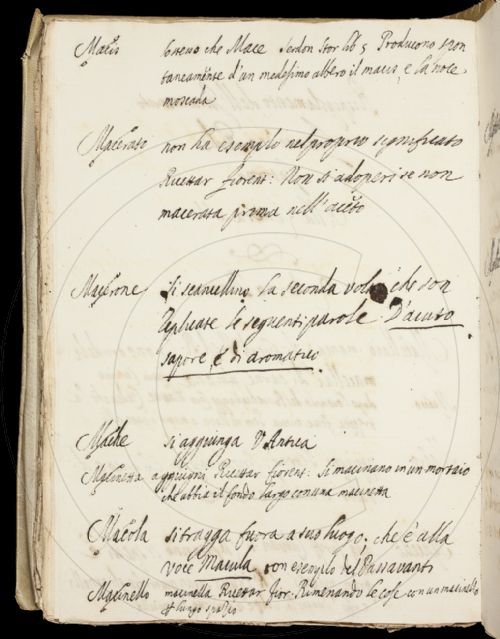 Macis lo stesso che Mace Serdon Stor lib 5 Producono spon
taneamente d'un medesimo albero il macis, e la noce
moscada
Macerato non ha esempio nel proprio significato
Ricettar fiorent: Non si adoperi se non
macerata prima nell'aceto
Macerone si scancellino la seconda volta che son
replicate le seguenti parole. D'acuto
sapore, e di aromatico.
si aggiunga V Antica
Macinetta aggiugni Ricettar fiorent: Si macinano in un mortaio
che abbia il fondo largo con una macinetta
Macola si tragga fuora a suo luogo, che è alla
Voce Macula con esempio del Passavanti
Macinello macinella Ricettar fior. Rimenando le cose con un macinello
lungo spazio